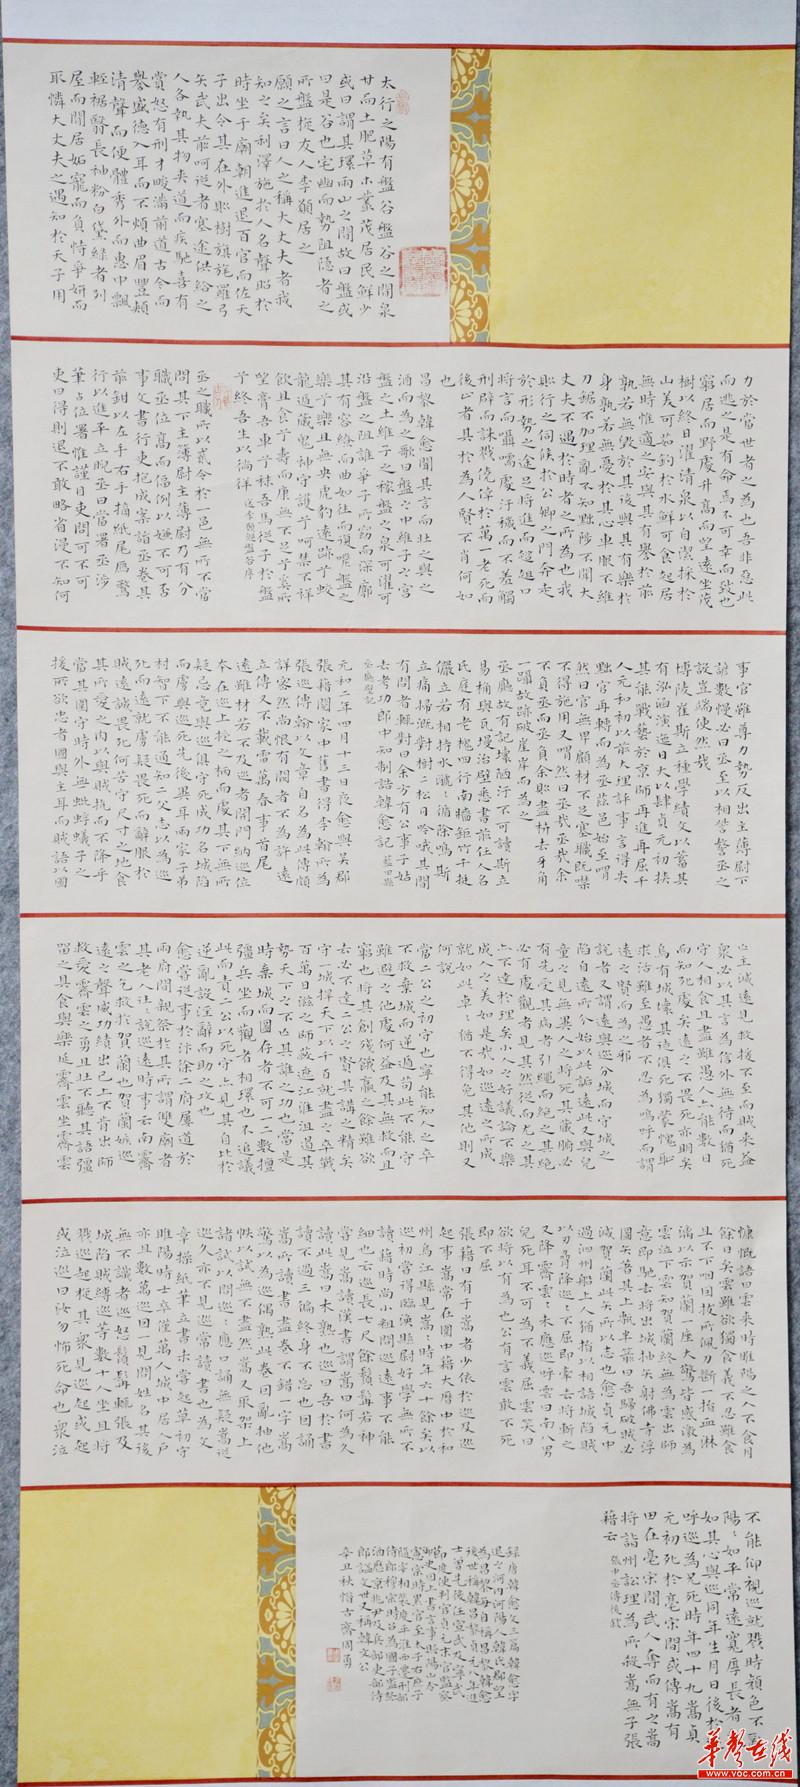 太行之陽有盤谷盤谷之間泉
甘而土肥草木叢茂居民鮮少
或曰謂其環兩山之間故曰盤或
曰是谷也宅幽而勢阻隱者之
所盤旋友人李愿居之
愿之言曰人之稱大丈夫者我
知之矣利澤施於人名聲昭於
時坐于廟朝進退百官而佐天
子出令其在外則樹旗旄羅弓
矢武夫前呵從者塞途供給之
人各執其物夾道而疾馳喜有
賞怒有刑才畯滿前道古今而
譽盛德入耳而不煩曲眉豐頰
清聲而便體秀外而惠中飄
輕裾翳長袖粉白黛綠者列
屋而閒居妬寵而負恃爭妍而
取憐大丈夫之遇知於天子用
力於當世者之為也吾非惡此
而逃之是有命焉不可幸而致也
窮居而野處升高而望遠坐茂
樹以終日濯清泉以自潔採於
山美可茹釣於水鮮可食起居
無時惟適之安與其有譽於前
孰若無毀於其後與其有樂於
身孰若無憂於其心車服不維
刀鋸不加理亂不知黜陟不聞大
丈夫不遇於時者之所為也我
則行之伺候於公卿之門奔走
於形勢之途足將進而趑趄口
將言而囁嚅處汙穢而不羞觸
刑辟而誅戮僥倖於萬一老死而
後止者其於為人賢不肖何如
也
昌黎韓愈聞其言而壯之與之
酒而為之歌曰盤之中維子之宮
盤之土維子之稼盤之泉可濯可
沿盤之阻誰爭子所窈而深廓
其有容繚而曲如往而復嗟盤之
樂兮樂且無央虎豹遠跡兮蛟
龍遁藏鬼神守護兮呵禁不祥
飲且食兮壽而康無不足兮奚所
望膏吾車兮秣吾馬從子于盤
兮終吾生以徜徉 送李愿歸盤谷序
丞之職所以貳令於一邑無所不當
問其下主簿尉主簿尉乃有分
職丞位高而偪例以嫌不可否
事文書行吏抱成案詣丞卷其
前鉗以左手右手摘紙尾鴈鶩
行以進平立睨丞曰當署丞涉
筆占位署惟謹目吏問可不可
吏曰得則退不敢略省漫不知何
事官雖尊力勢反出主簿尉下
諺數慢必曰丞至以相訾謷丞之
設豈端使然哉
博陵崔斯立種學績文以蓄其
有泓涵演迤日大以肆貞元初挾
其能戰藝於京師再進再屈千
人元和初以前大理評事言得失
黜官再轉而為丞茲邑始至喟
然曰官無卑顧材不足塞職既噤
不得施用又喟然曰丞哉丞哉余
不負丞而丞負余則盡枿去牙角
一躡故跡破崖岸而為之
丞廳故有記壞陋汙不可讀斯立
易桷與瓦墁治壁悉書前任人名
氏庭有老槐四行南牆鉅竹千挺
儼立若相持水㶁㶁循除鳴斯
立痛掃溉對樹二松日吟哦其間
有問者輒對曰余方有公事子姑
去考功郎中知制誥韓愈記 藍田縣
丞廳壁記
元和二年四月十三日夜愈與吳郡
張籍閱家中舊書得李翰所為
張巡傳翰以文章自名為此傳頗
詳密然尚恨有闕者不為許遠
立傳又不載雷萬春事首尾
遠雖材若不及巡者開門納巡位
本在巡上授之柄而處其下無所
疑忌竟與巡俱守死成功名城陷
而虜與巡死先後異耳兩家子弟
材智下不能通知二父志以為巡
死而遠就虜疑畏死而辭服於
賊遠誠畏死何苦守尺寸之地食
其所愛之肉以與賊抗而不降乎
當其圍守時外無蚍蜉蟻子之
援所欲忠者國與主耳而賊語以國
亡主滅遠見救援不至而賊來益
眾必以其言為信外無待而猶死
守人相食且盡雖愚人亦能數日
而知死處矣遠之不畏死亦明矣
烏有城壞其徒俱死獨蒙愧恥
求活雖至愚者不忍為嗚呼而謂
遠之賢而為之邪
說者又謂遠與巡分城而守城之
陷自遠所分始以此詬遠此又與兒
童之見無異人之將死其臟腑必
有先受其病者引繩而絕之其絕
必有處觀者見其然從而尤之其
亦不達於理矣小人之好議論不樂
成人之美如是哉如巡遠之所成
就如此卓卓猶不得免其他則又
何說
當二公之初守也寧能知人之卒
不救棄城而逆遁苟此不能守
雖避之他處何益及其無救而且
窮也將其創殘餓羸之餘雖欲
去必不達二公之賢其講之精矣
守一城捍天下以千百就盡之卒戰
百萬日滋之師蔽遮江淮沮遏其
勢天下之不亡其誰之功也當是
時棄城而圖存者不可一二數擅
彊兵坐而觀者相環也不追議
此而責二公以死守亦見其自比於
逆亂設淫辭而助之攻也
愈嘗從事於汴徐二府屢道於
兩府間親祭於其所謂雙廟者
其老人往往說巡遠時事云南霽
雲之乞救於賀蘭也賀蘭嫉巡
遠之聲威功績出己上不肯出師
救愛霽雲之勇且壯不聽其語彊
留之具食與樂延霽雲坐霽雲
慷慨語曰雲來時睢陽之人不食月
餘日矣雲雖欲獨食義不忍雖食
且不下咽因拔所佩刀斷一指血淋
漓以示賀蘭一座大驚皆感激為
雲泣下雲知賀蘭終無為雲出師
意即馳去將出城抽矢射佛寺浮
圖矢著其上甎半箭曰吾歸破賊必
滅賀蘭此矢所以志也愈貞元中
過泗州船上人猶指以相語城陷賊
以刃脅降巡巡不屈即牽去將斬之
又降霽雲雲未應巡呼雲曰南八男
兒死耳不可為不義屈雲笑曰
欲將以有為也公有言雲敢不死
即不屈
張籍曰有于嵩者少依於巡及巡
起事嵩常在圍中籍大曆中於和
州烏江縣見嵩嵩時年六十餘矣以
巡初嘗得臨渙縣尉好學無所不
讀籍時尚小粗問巡遠事不能
細也云巡長七尺餘鬚髯若神
嘗見嵩讀漢書謂嵩曰何為久
讀此嵩曰未熟也巡曰吾於書
讀不過三徧終身不忘也因誦
嵩所讀書盡卷不錯一字嵩
驚以為巡偶熟此卷因亂抽他
帙以試無不盡然嵩又取架上
諸書試以問巡巡應口誦無疑嵩從
巡久亦不見巡常讀書也為文
章操紙筆立書未嘗起草初守
睢陽時士卒僅萬人城中居人戶
亦且數萬巡因一見問姓名其後
無不識者巡怒鬚髯輒張及
城陷賊縛巡等數十人坐且將
戮巡起旋其眾見巡起或起
或泣巡曰汝勿怖死命也眾泣
不能仰視巡就戮時顏色不亂
陽陽如平常遠寬厚長者
如其心與巡同年生月日後於
呼巡為兄死時年四十九嵩貞
元初死於亳宋間或傳嵩有
田在亳宋間武人奪而有之嵩
將詣州訟理為所殺嵩無子張
籍云 張中丞傳後敘
錄唐韓愈文三篇韓愈字
退之河內河陽人韓氏郡望
為昌黎每自稱昌黎韓愈
後世稱韓昌黎貞元八年進
辛丑秋惜古齋周勇
華聲在线
www.voc.com.cn